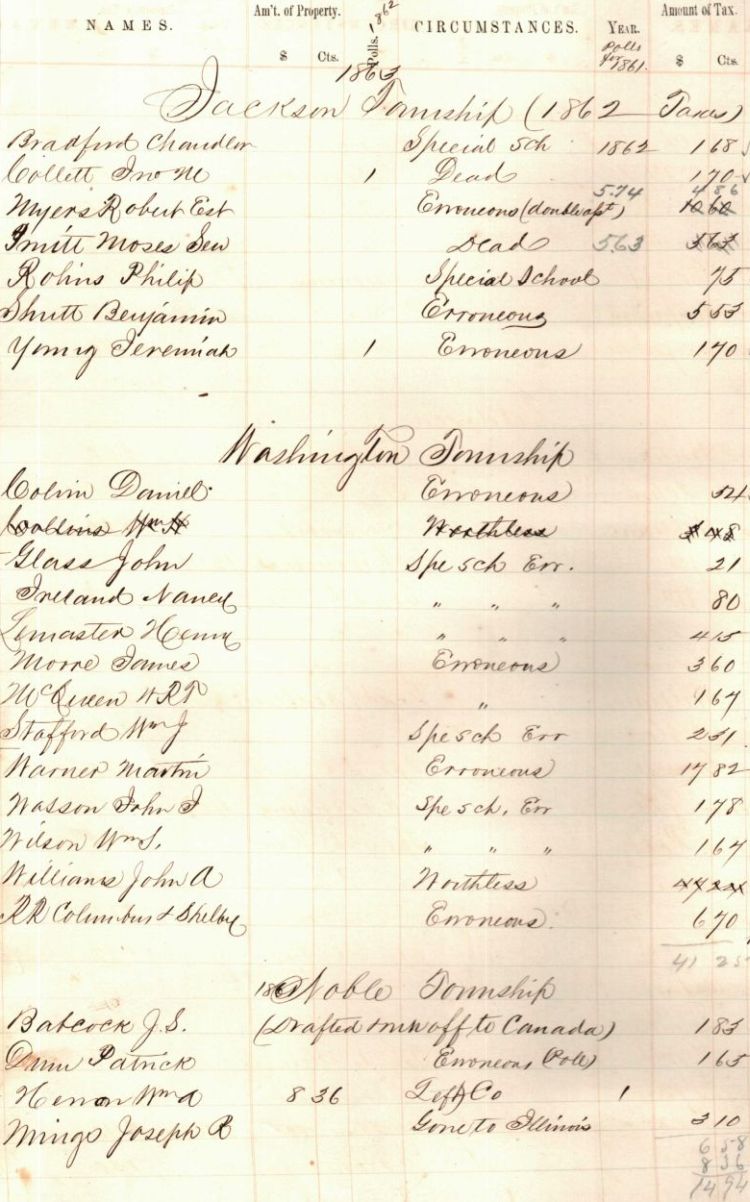 NAMES. Am't. of Property. Polls. 1862 CIRCUMSTANCES. YEAR. Amount of Tax.
$ Cts. 1863 Polls for 1861. $ Cts.
Jackson Township (1862 Taxes)
Bradford Chandler Special Sch 1862 1 68
Collett Jno M 1 Dead 1 70
5.74 4 86
Myers Robert Est Erroneous (double apt) 10 60
Pruitt Moses Sen Dead 5.63 5 63
Rohins Philip Special School 75
Shutt Benjamin Erroneous 5 53
Young Jeremiah 1 Erroneous 1 70
Washington Township
Colvin Daniel Erroneous 54
Collins Wm H Worthless 3 48
Glass John Spe Sch Err. 21
Ireland Nancy " " " 80
Lemaster Henry " " " 4 15
Moore James Erroneous 3 60
McQueen " 1 67
Stafford Wm J Spe Sch Err 2 31
Warner Martin Erroneous 17 82
Wasson John J Spe Sch. Err 1 78
Wilson Wm S. " " " 1 67
Williams John A Worthless
RR Columbus & Shelby Erroneous. 6 70
41 25
Noble Township
Babcock J. S. (Drafted & run off to Canada) 1 83
Dunn Patrick Erroneous (Poll) 1 65
Herron Wm A 8 36 Left Co 1
Mings Joseph R Gone to Illinois 3 10
6 58
8 36
14 94